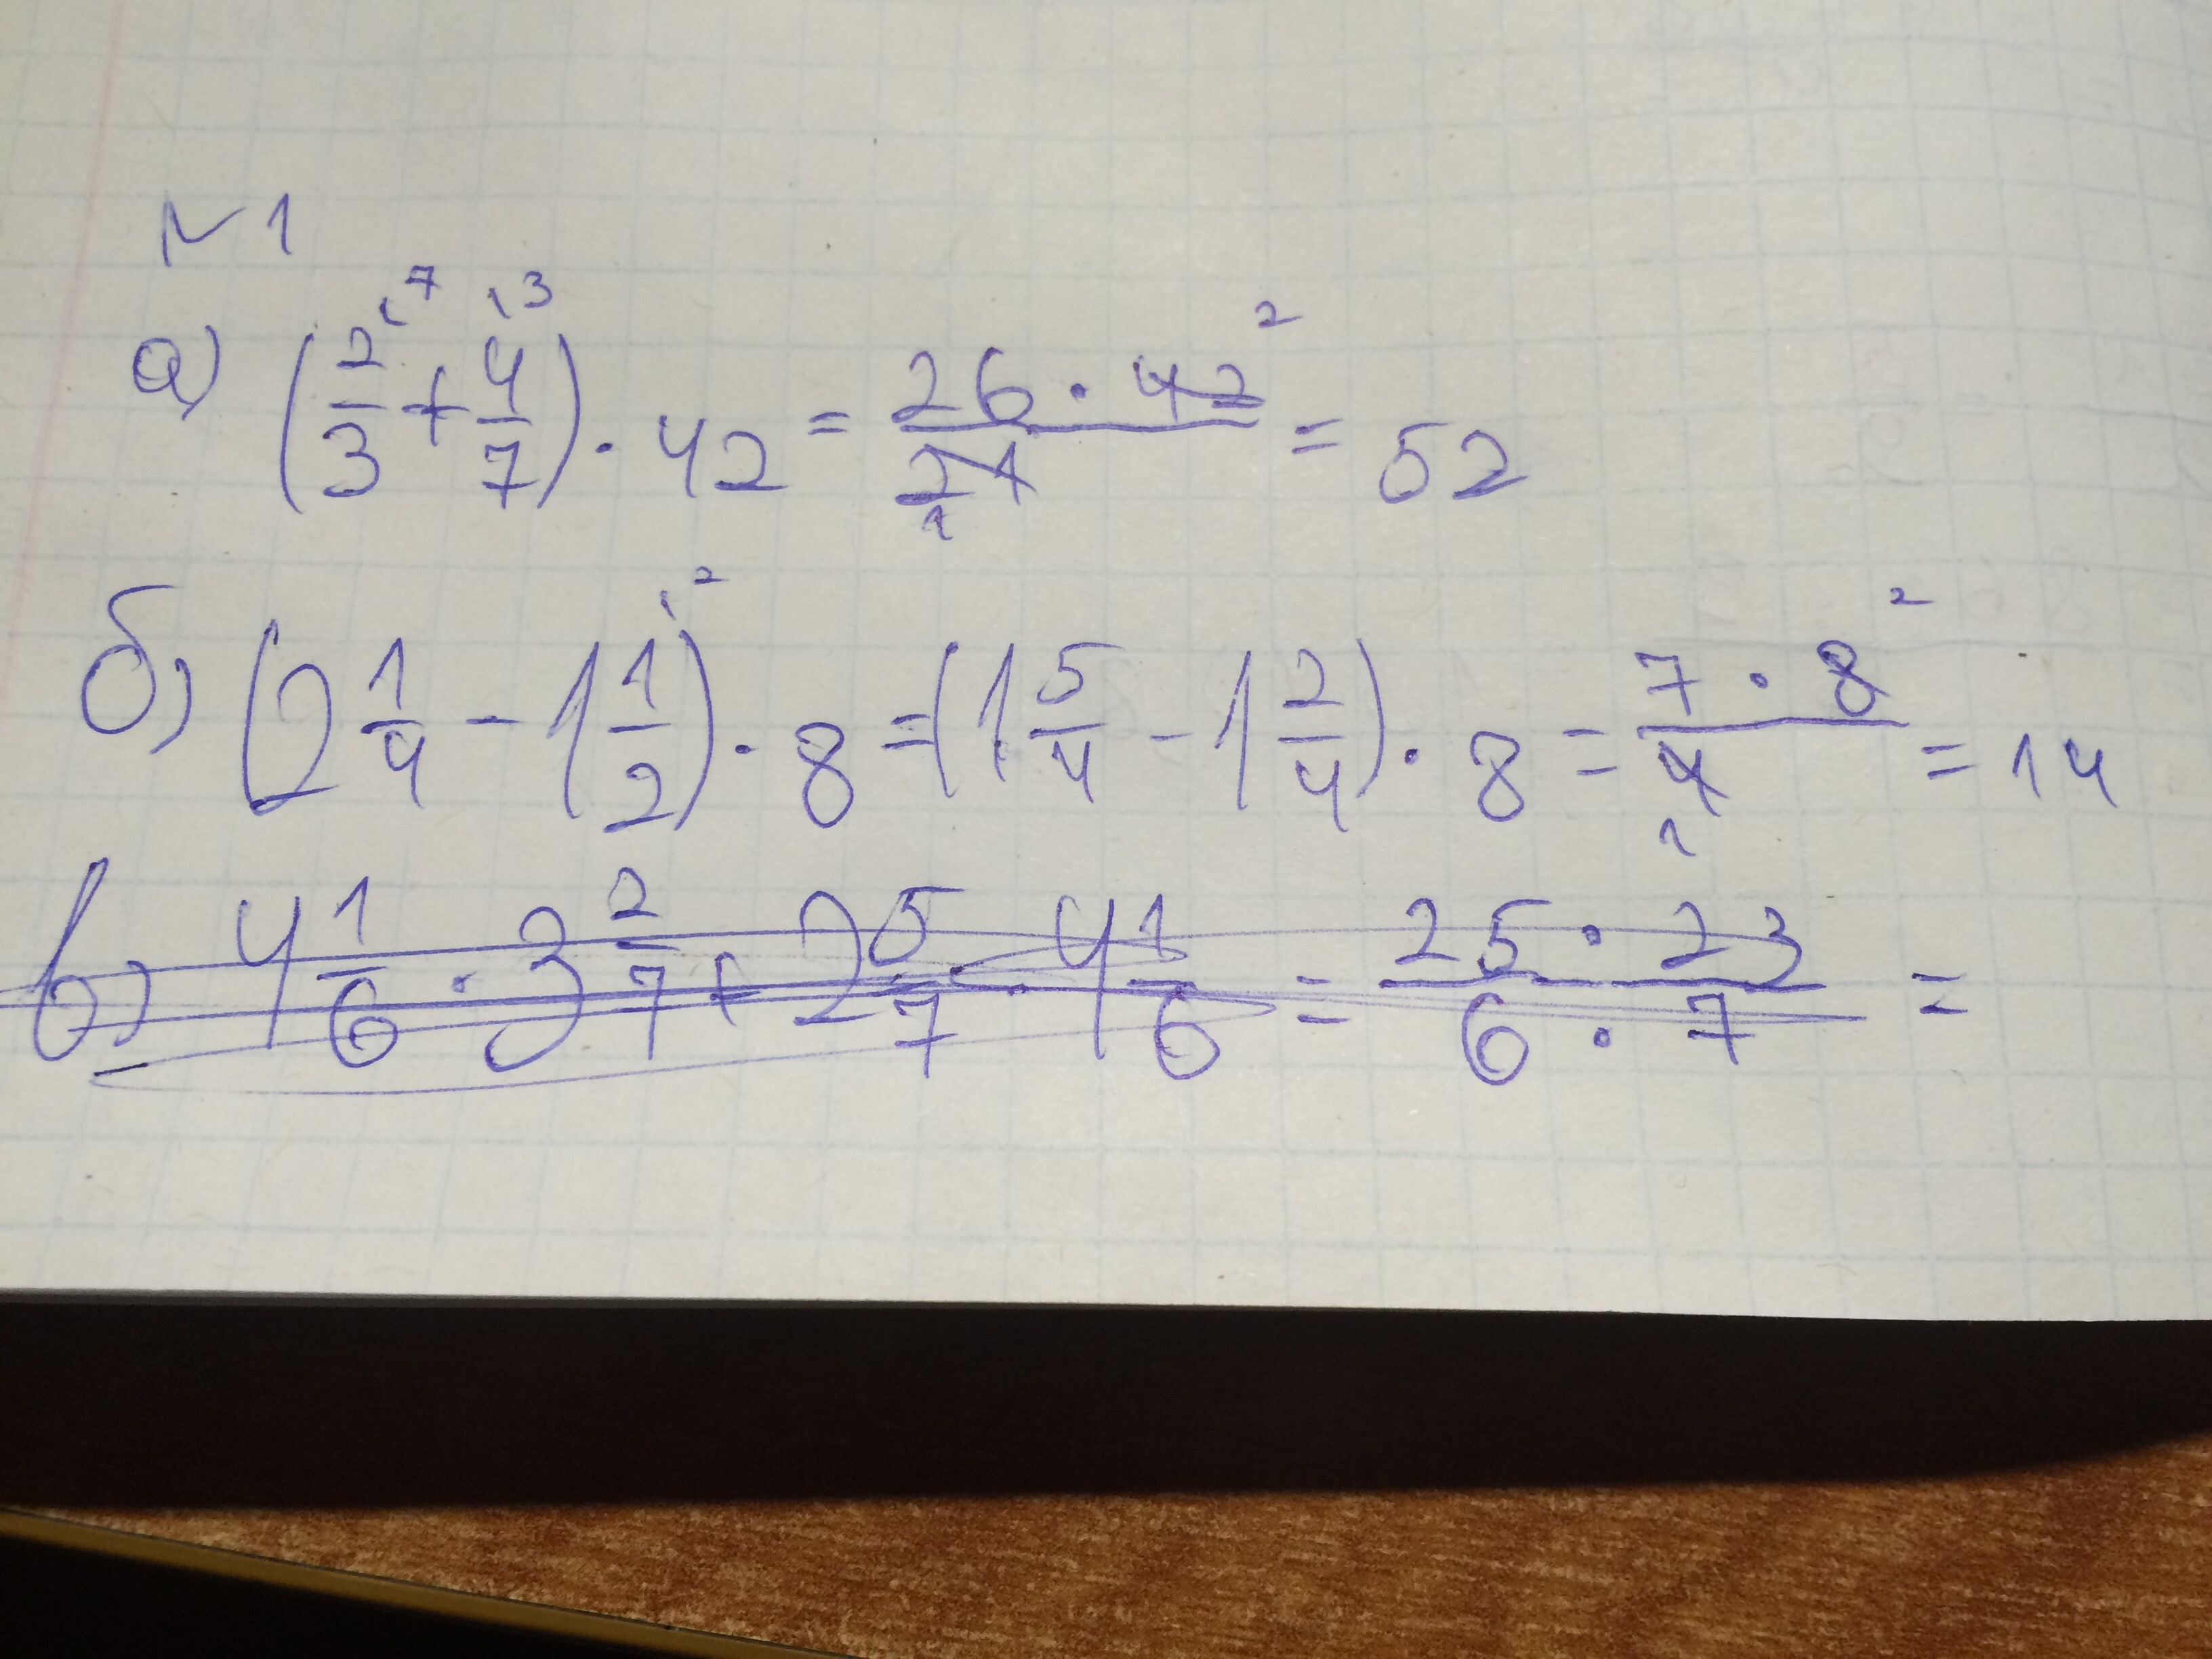 N 1
а) (2/3^{\7} + 4/7^{\3}) · 42 = 26 · 42^2 / 21_1 = 52
б) (2 1/4 - 1 1/2^{\2}) · 8 = (1 5/4 - 1 2/4) · 8 = 7 · 8^2 / 4_1 = 14
в) 4 1/6 · 3 2/7 + 2 5/7 · 4 1/6 = 25 · 23 / 6 · 7 =